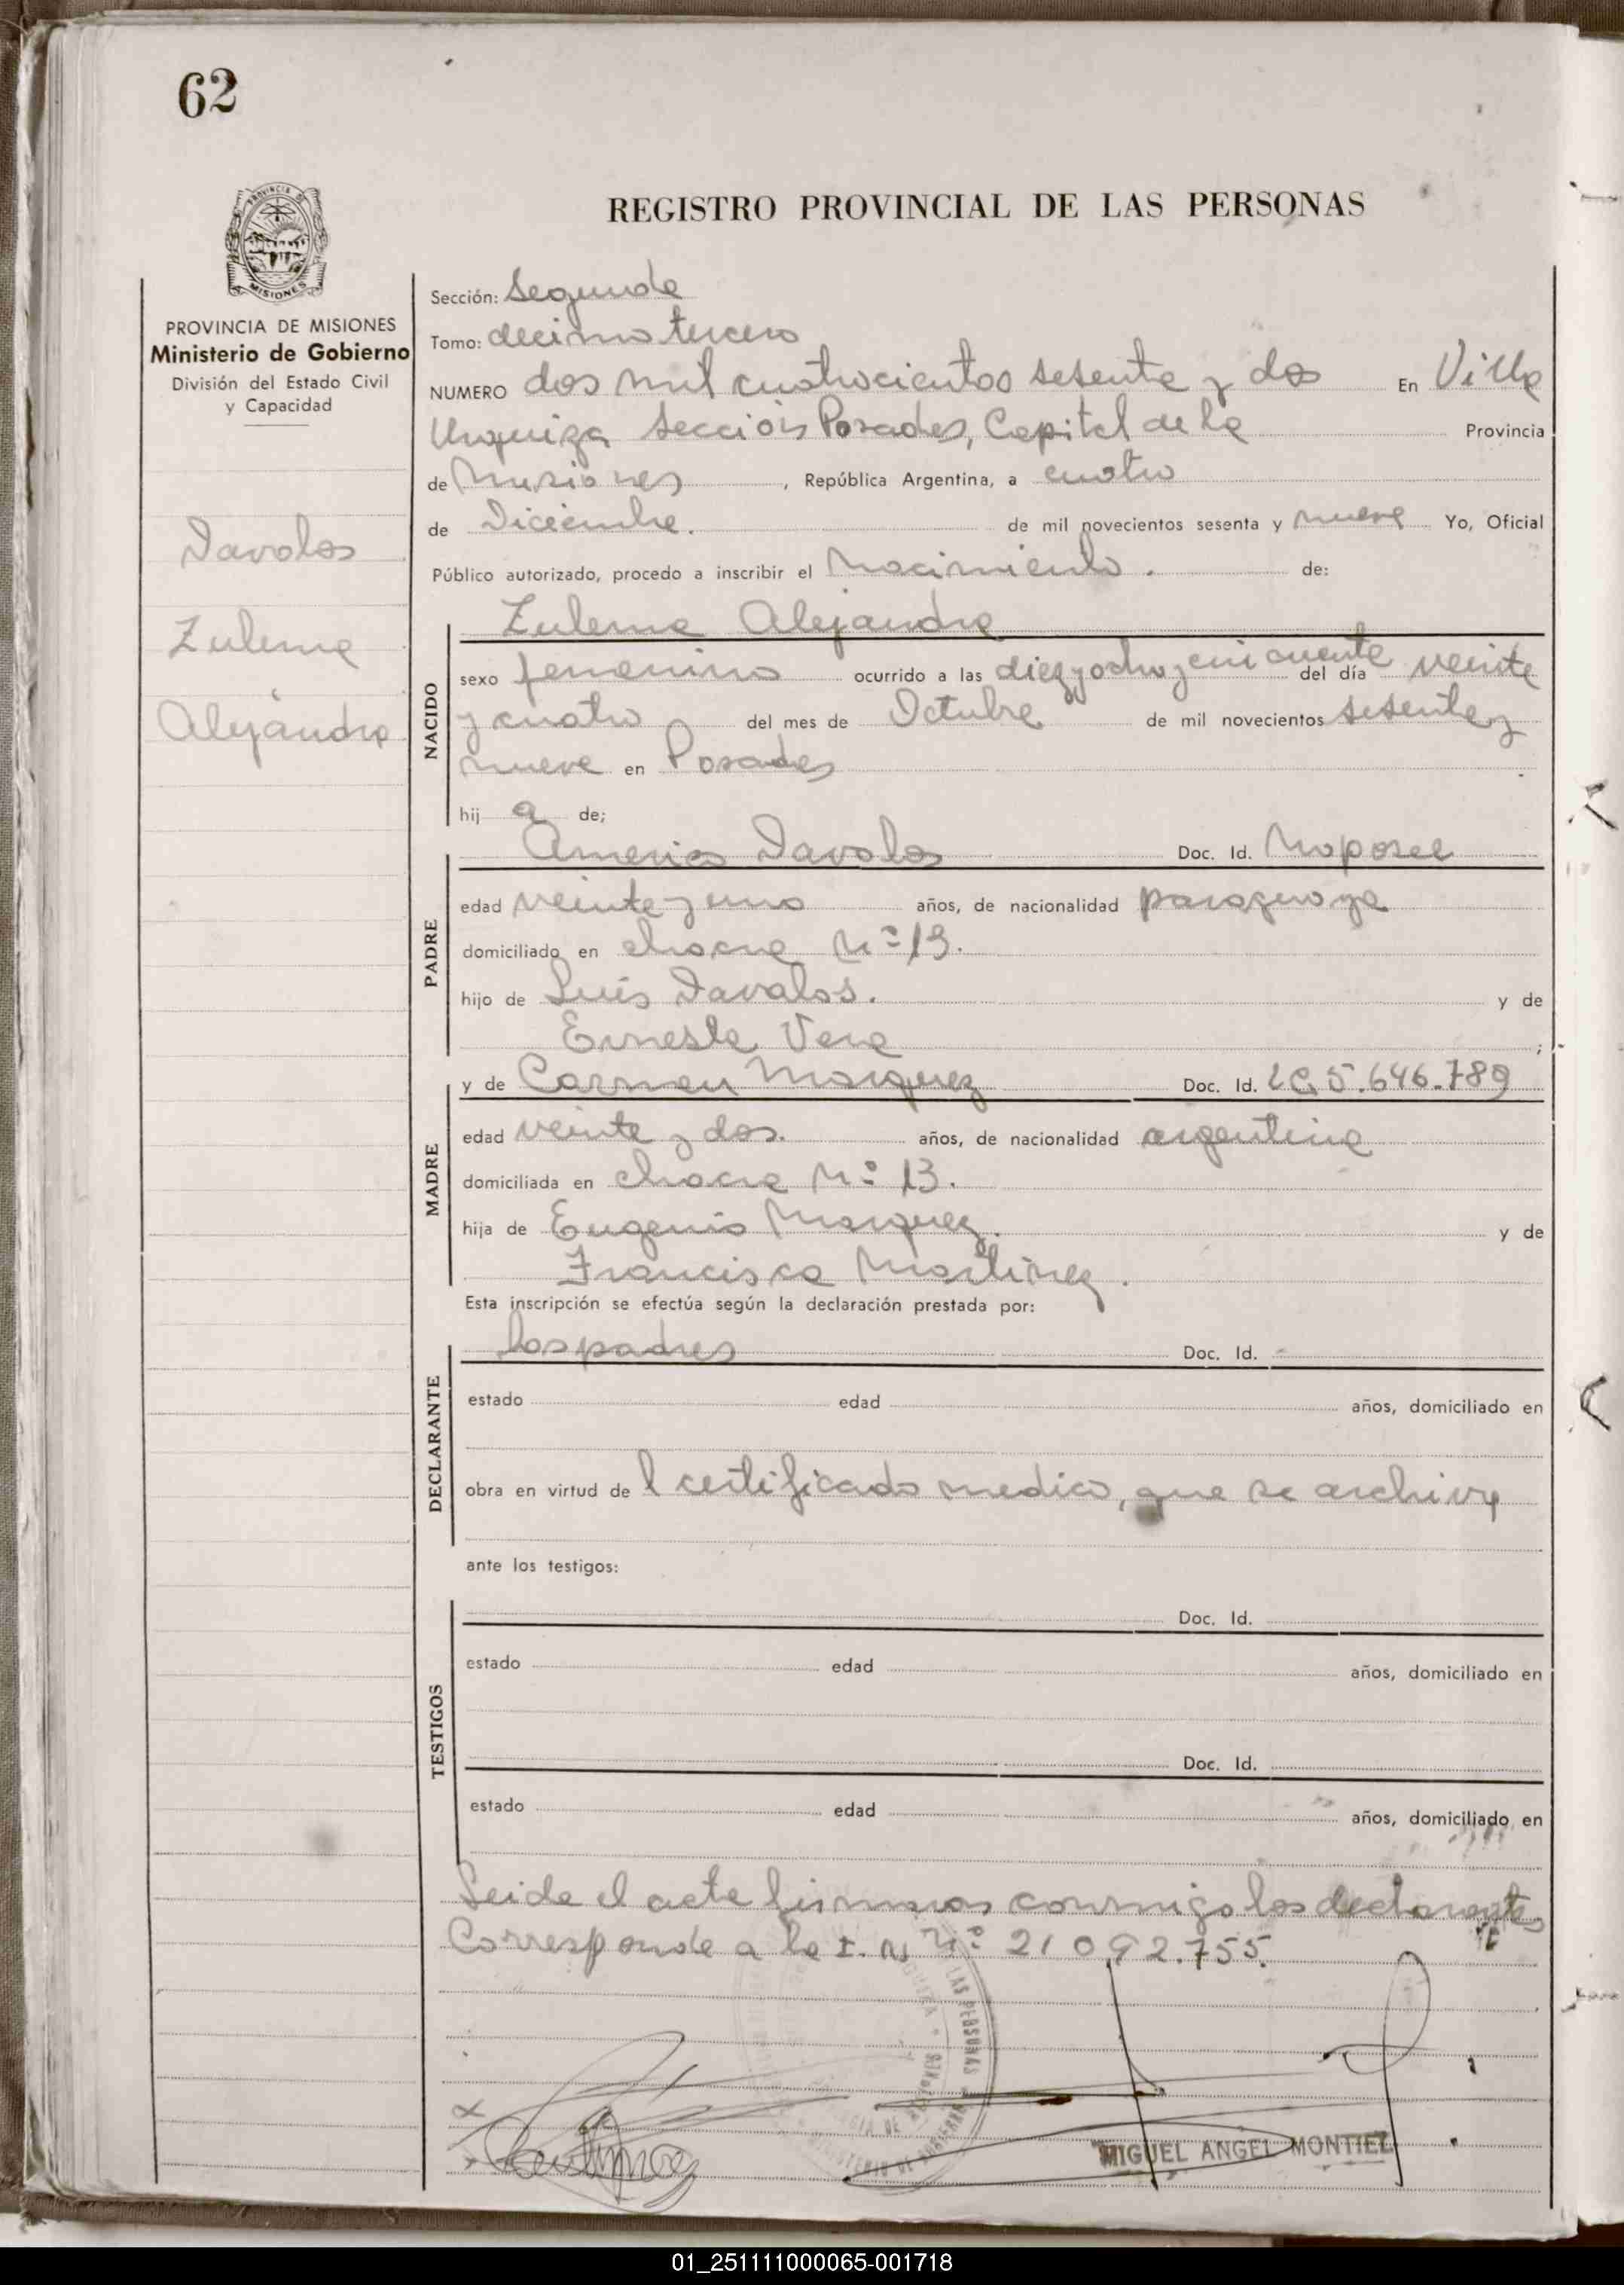 62
REGISTRO PROVINCIAL DE LAS PERSONAS
PROVINCIA DE MISIONES
Ministerio de Gobierno
División del Estado Civil
y Capacidad
Davalos
Zulema
Alejandra
Sección: Segunda
Tomo: decimo tercero
NUMERO dos mil cuatrocientos sesenta y dos En Villa
Urquiza Sección Posadas, Capital de la Provincia
de Misiones, República Argentina, a cuatro
de Diciembre. de mil novecientos sesenta y nueve Yo, Oficial
Público autorizado, procedo a inscribir el Nacimiento. de:
Zulema Alejandra
NACIDO
sexo femenino ocurrido a las diez y ocho y cincuenta del día veinte
y cuatro del mes de Octubre de mil novecientos sesenta y
nueve en Posadas
hij a de;
PADRE
Americo Davalos Doc. Id. No posee
edad veinte y uno años, de nacionalidad paraguaya
domiciliado en chacra Nº 13.
hijo de Luis Davalos. y de
Ernesta Vera ;
MADRE
y de Carmen Marquez Doc. Id. LC 5.646.789
edad veinte y dos. años, de nacionalidad argentina
domiciliada en chacra Nº 13.
hija de Eugenio Marquez. y de
Francisca Martinez.
Esta inscripción se efectúa según la declaración prestada por:
DECLARANTE
los padres Doc. Id.
estado edad años, domiciliado en
obra en virtud de l certificado medico, que se archiva
ante los testigos:
TESTIGOS
Doc. Id.
estado edad años, domiciliado en
Doc. Id.
estado edad años, domiciliado en
Leida el acta firmaron conmigo los declarantes
Corresponde a la I. N. Nº 21 092.755.
MIGUEL ANGEL MONTIEL
01_251111000065-001718